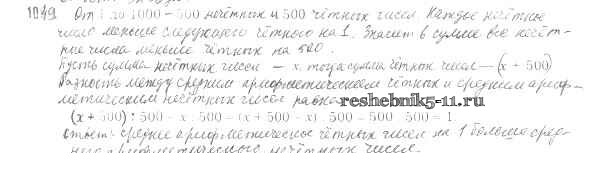 1049 От 1 до 1000 – 500 нечётных и 500 чётных чисел. Каждое нечётное
число меньше следующего чётного на 1. Значит в сумме все нечёт-
ные числа меньше чётных на 500.
Пусть сумма нечётных чисел – x, тогда сумма чётных чисел – (x + 500)
Разность между средним арифметическим чётных и средним ариф-
метическим нечётных чисел равна
reshebnik5-11.ru
(x + 500) : 500 – x : 500 = (x + 500 – x) : 500 = 500 : 500 = 1
Ответ: среднее арифметическое чётных чисел на 1 больше сред-
него арифметического нечётных чисел.